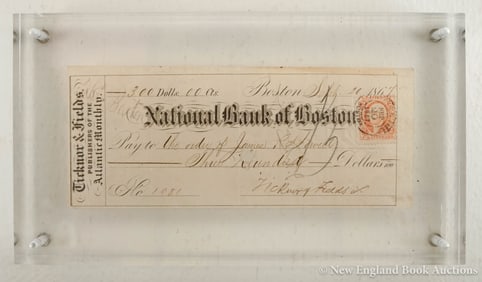 Ticknor & Fields.
PUBLISHERS OF THE
Atlantic Monthly.
300 Dolls. 00 Cts. Boston 20 1867
National Bank of Boston
Pay to the order of James R. Lowell
Three Hundred Dollars
No. 1081
Ticknor & Fields
© New England Book Auctions